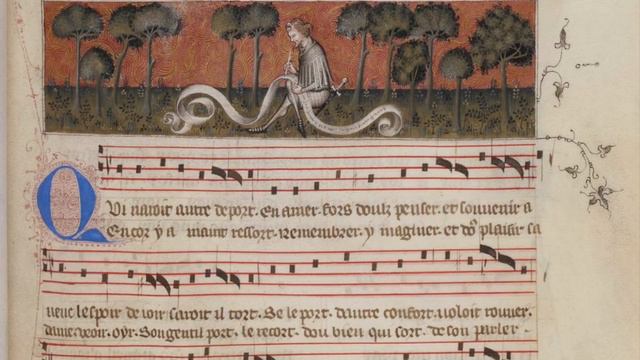 QVi naroit autre deport. En amer. fors doulz penser. et souvenir a
Encor y a maint ressort. Remembrer. y maginer. et dous plaisir sa
uent lespoir de ioir. Sauroit il tort. Se le port. dautre confort. uoloit rouuer.
dame. veoir. oyr. Son gentil port. le recort. dou bien qui sort. de son parler.